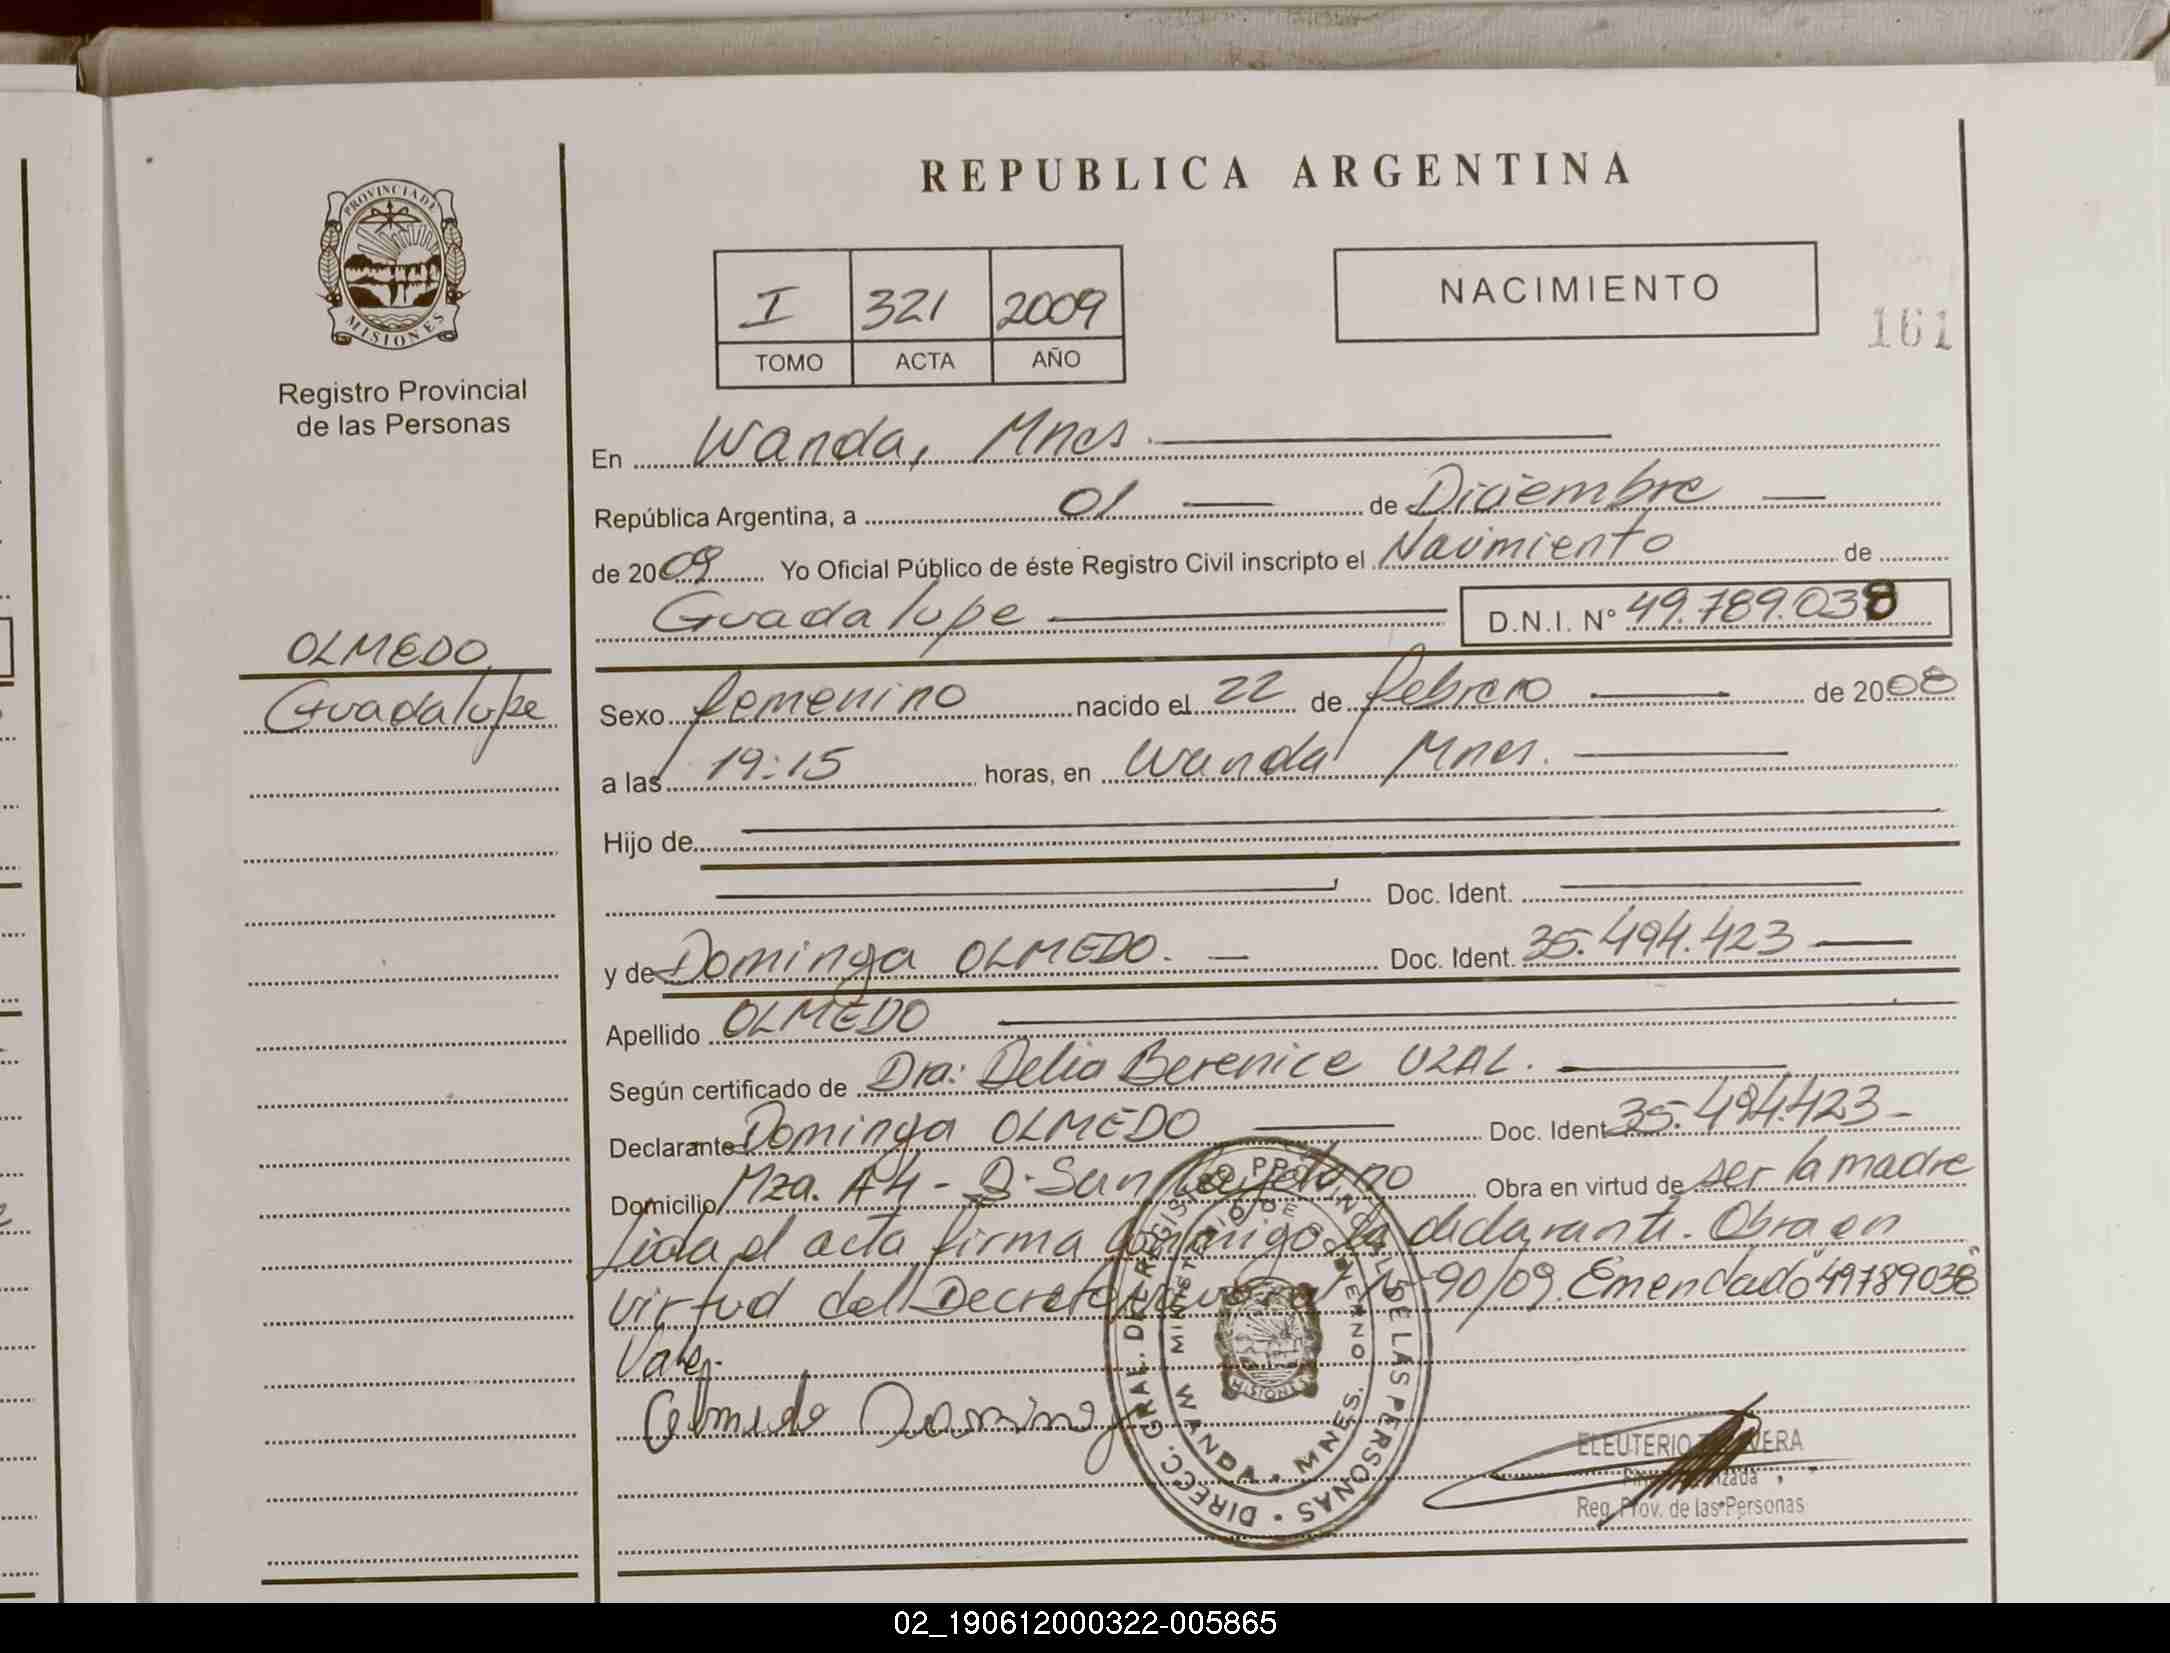 REPUBLICA ARGENTINA
PROVINCIA DE
MISIONES
Registro Provincial
de las Personas
I 321 2009
TOMO ACTA AÑO
NACIMIENTO
161
En Wanda, Mnes.
República Argentina, a 01 de Diciembre
de 2009 Yo Oficial Público de éste Registro Civil inscripto el Nacimiento de
Guadalupe D.N.I. Nº 49.789.038
OLMEDO
Guadalupe
Sexo femenino nacido el 22 de febrero de 2008
a las 19:15 horas, en Wanda Mnes.
Hijo de
Doc. Ident.
y de Dominga OLMEDO. Doc. Ident. 35.494.423
Apellido OLMEDO
Según certificado de Dra: Delia Berenice UZAL.
Declarante Dominga OLMEDO Doc. Ident 35.494.423
Domicilio Mza. A4 - B. San Cayetano Obra en virtud de ser la madre
Leida el acta firma conmigo la declarante. Obra en
virtud del Decreto Nº 90/09. Emendado "49789038"
Vale.
Olmedo Dominga
DIRECC. GRAL. DE REGISTRO PROVINCIAL DE LAS PERSONAS
MINISTERIO DE GOBIERNO
WANDA • MNES.
MISIONES
ELEUTERIO
Reg. Prov. de las Personas
02_190612000322-005865